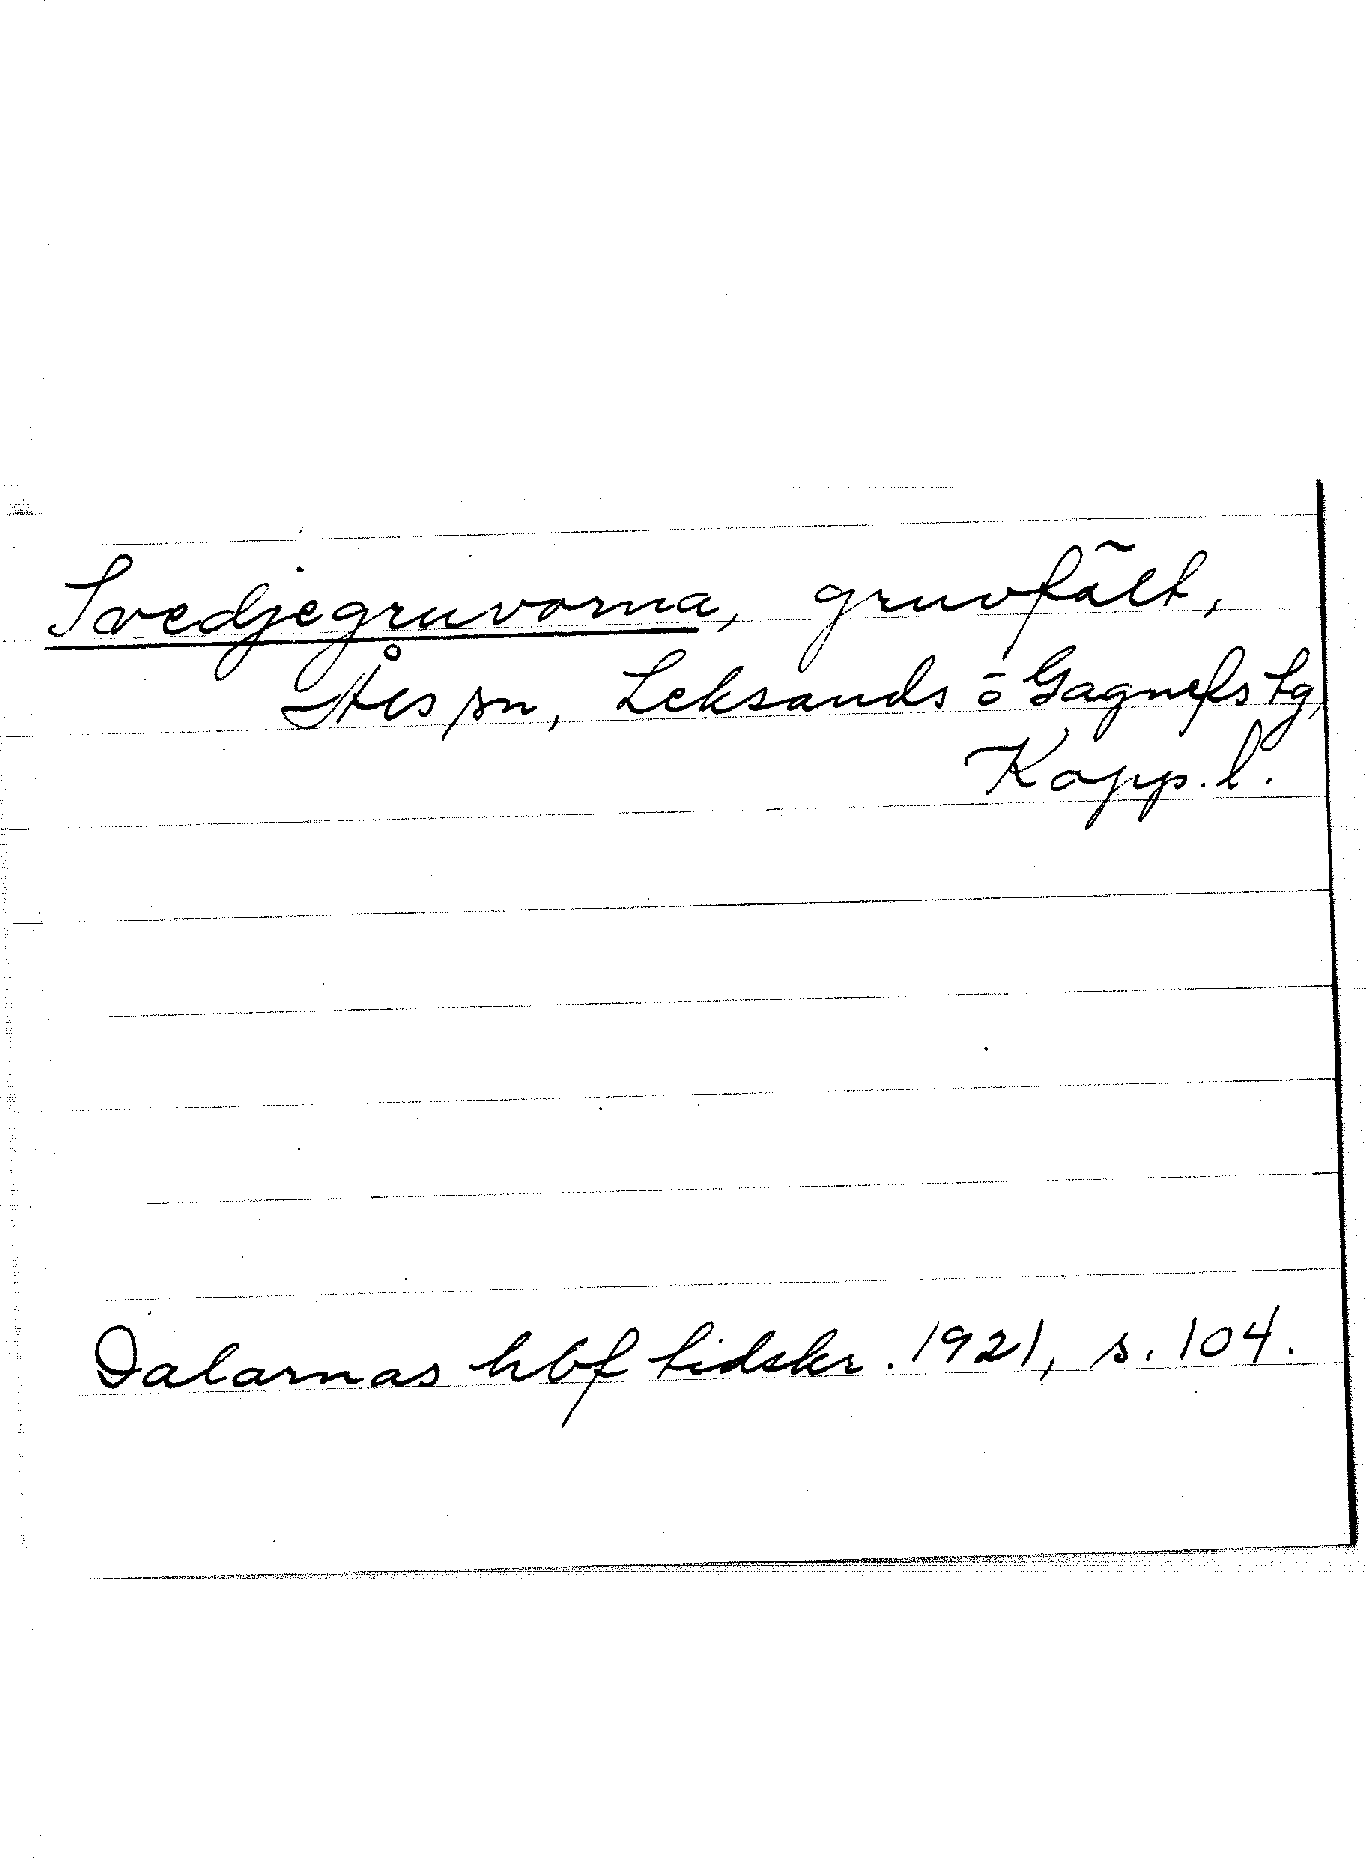 Svedjegruvorna, gruvfält,
Åls sn, Leksands o Gagnefs tg,
Kopp. l.
Dalarnas hbf tidskr. 1921, s. 104.